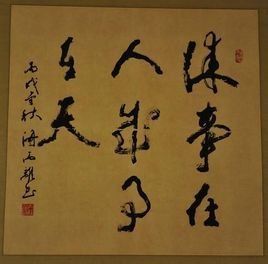 谋事在
人成事
在天
丙戌金秋